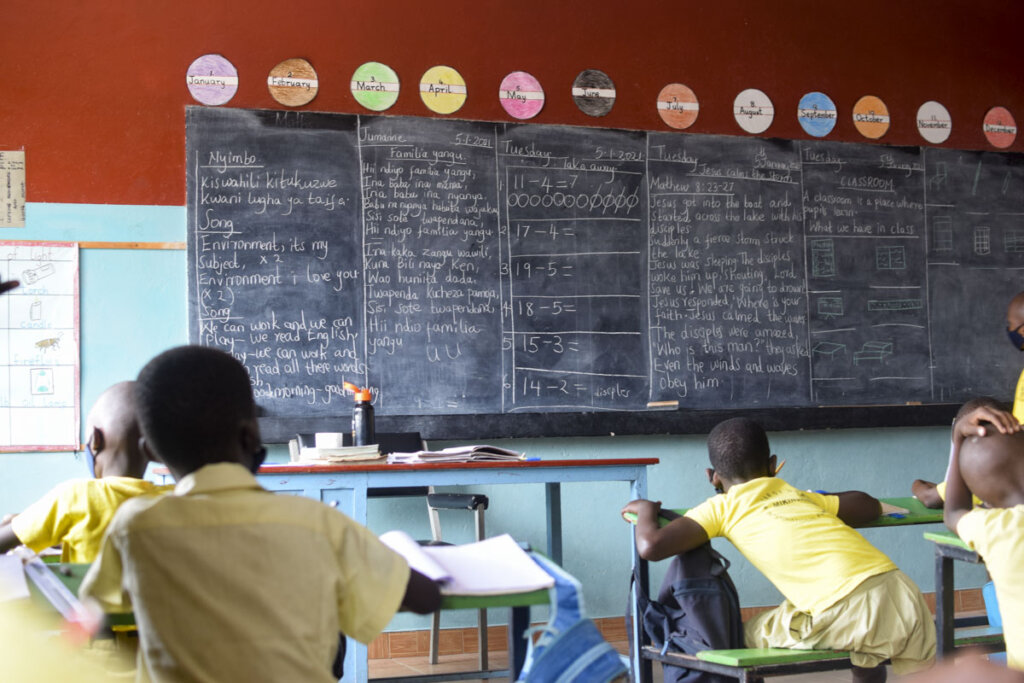 1. January
2. February
3. March
4. April
5. May
June
7. July
8. August
9. September
10. October
11. November
12. December
Nyimbo
Kiswahili kitukuzwe
Kwani lugha ya taifa.
Song
Environment, its my
Subject, x 2
Environment i love you
(x 2)
Song
We can work and we can
play - we read English
play - we can work and
read all these words
goodmorning - goodmorning
Jumanne 5-1-2021
Familia yangu
Hii ndiyo familia yangu,
Ina babu ina nyanya.
Babu na nyanya
Sisi sote twapendana,
Hii ndiyo familia yangu
Ina kaka zangu wawili,
Kuna Bili naye Ken,
Wao humuita dada,
Twapenda kucheza pamoja,
Sisi sote twapendana,
Hii ndio familia
yangu
Tuesday 5-1-2021
Take away
1 11-4=7
2 17-4=
3 19-5=
4 18-5=
5 15-3=
6 14-2=
disciples
Tuesday
Jesus calms the storm
Mathew 8:23-27
Jesus got into the boat and
started across the lake with his
disciples
Suddenly a fierce storm struck
the lake
Jesus was sleeping The disciples
woke him up, shouting, Lord
save us! We are going to drown
Jesus responded, Where is your
faith. Jesus calmed the waves
The disciples were amazed,
Who is this man? they asked
Even the winds and waves
obey him
Tuesday
CLASSROOM
A classroom is a place where
pupils learn.
What we have in class
Torch
candle